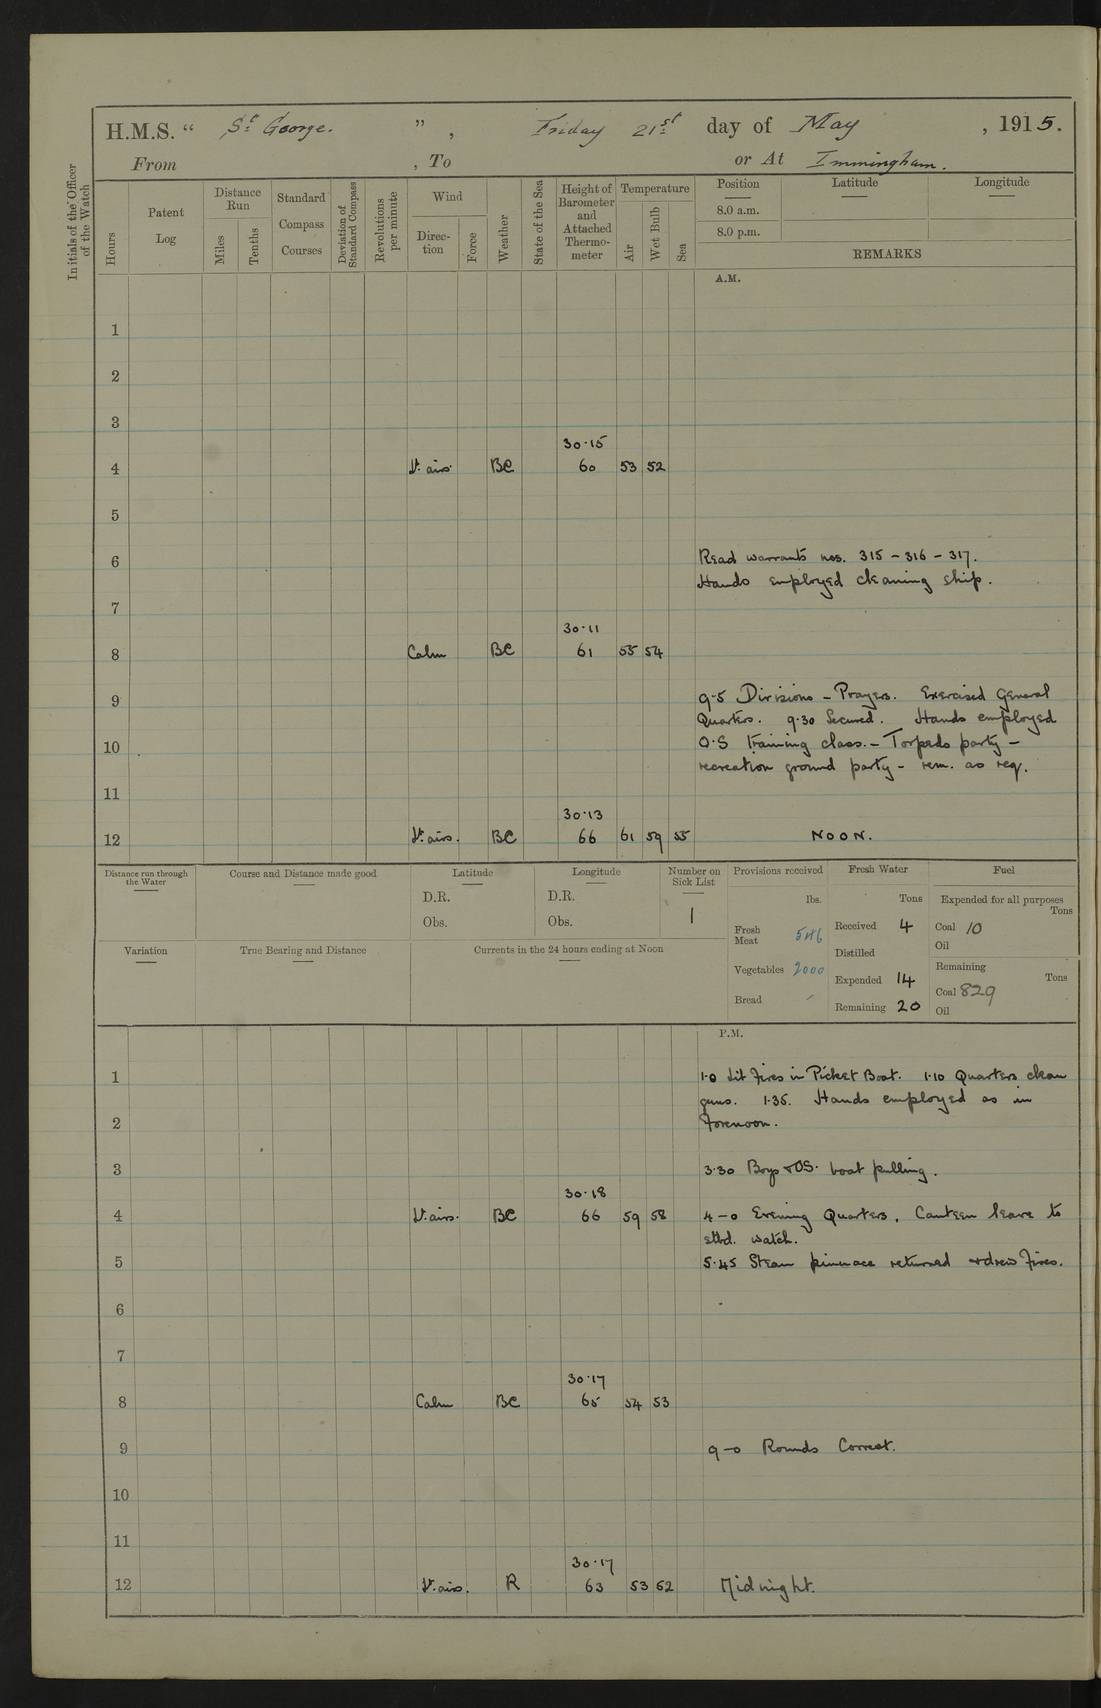 H.M.S. “ St George. ” , Friday 21st day of May , 1915.
From , To or At Immingham.
Initials of the Officer of the Watch
Hours
Patent Log
Distance Run
Miles
Tenths
Standard Compass Courses
Deviation of Standard Compass
Revolutions per minute
Wind
Direction
Force
Weather
State of the Sea
Height of Barometer and Attached Thermometer
Temperature
Air
Wet Bulb
Sea
Position Latitude Longitude
8.0 a.m.
8.0 p.m.
REMARKS
A.M.
1
2
3
30·15
4 Lt. airs. BC 60 53 52
5
6 Read warrants nos. 315 - 316 - 317.
Hands employed cleaning ship.
7
30·11
8 Calm BC 61 55 54
9 9·5 Divisions - Prayers. Exercised General
Quarters. 9·30 Secured. Hands employed
10 O.S training class. - Torpedo party -
recreation ground party - rem. as req.
11
30·13
12 Lt. airs. BC 66 61 59 55 NOON.
Distance run through the Water
Course and Distance made good
Latitude
D.R.
Obs.
Longitude
D.R.
Obs.
Number on Sick List
1
Provisions received
lbs.
Fresh Meat 546
Vegetables 2000
Bread /
Fresh Water
Tons
Received 4
Distilled
Expended 14
Remaining 20
Fuel
Expended for all purposes
Tons
Coal 10
Oil
Remaining
Tons
Coal 829
Oil
Variation
True Bearing and Distance
Currents in the 24 hours ending at Noon
P.M.
1 1·0 Lit fires in Picket Boat. 1·10 Quarters clean
guns. 1·35. Hands employed as in
2 forenoon.
3 3·30 Boys & OS. boat pulling.
30·18
4 Lt. airs. BC 66 59 58 4-0 Evening Quarters. Canteen leave to
stbd. watch.
5 5·45 Steam pinnace returned & drew fires.
6
7
30·17
8 Calm BC 65 54 53
9 9-0 Rounds Correct.
10
11
30·17
12 Lt. airs. R 63 53 52 Midnight.